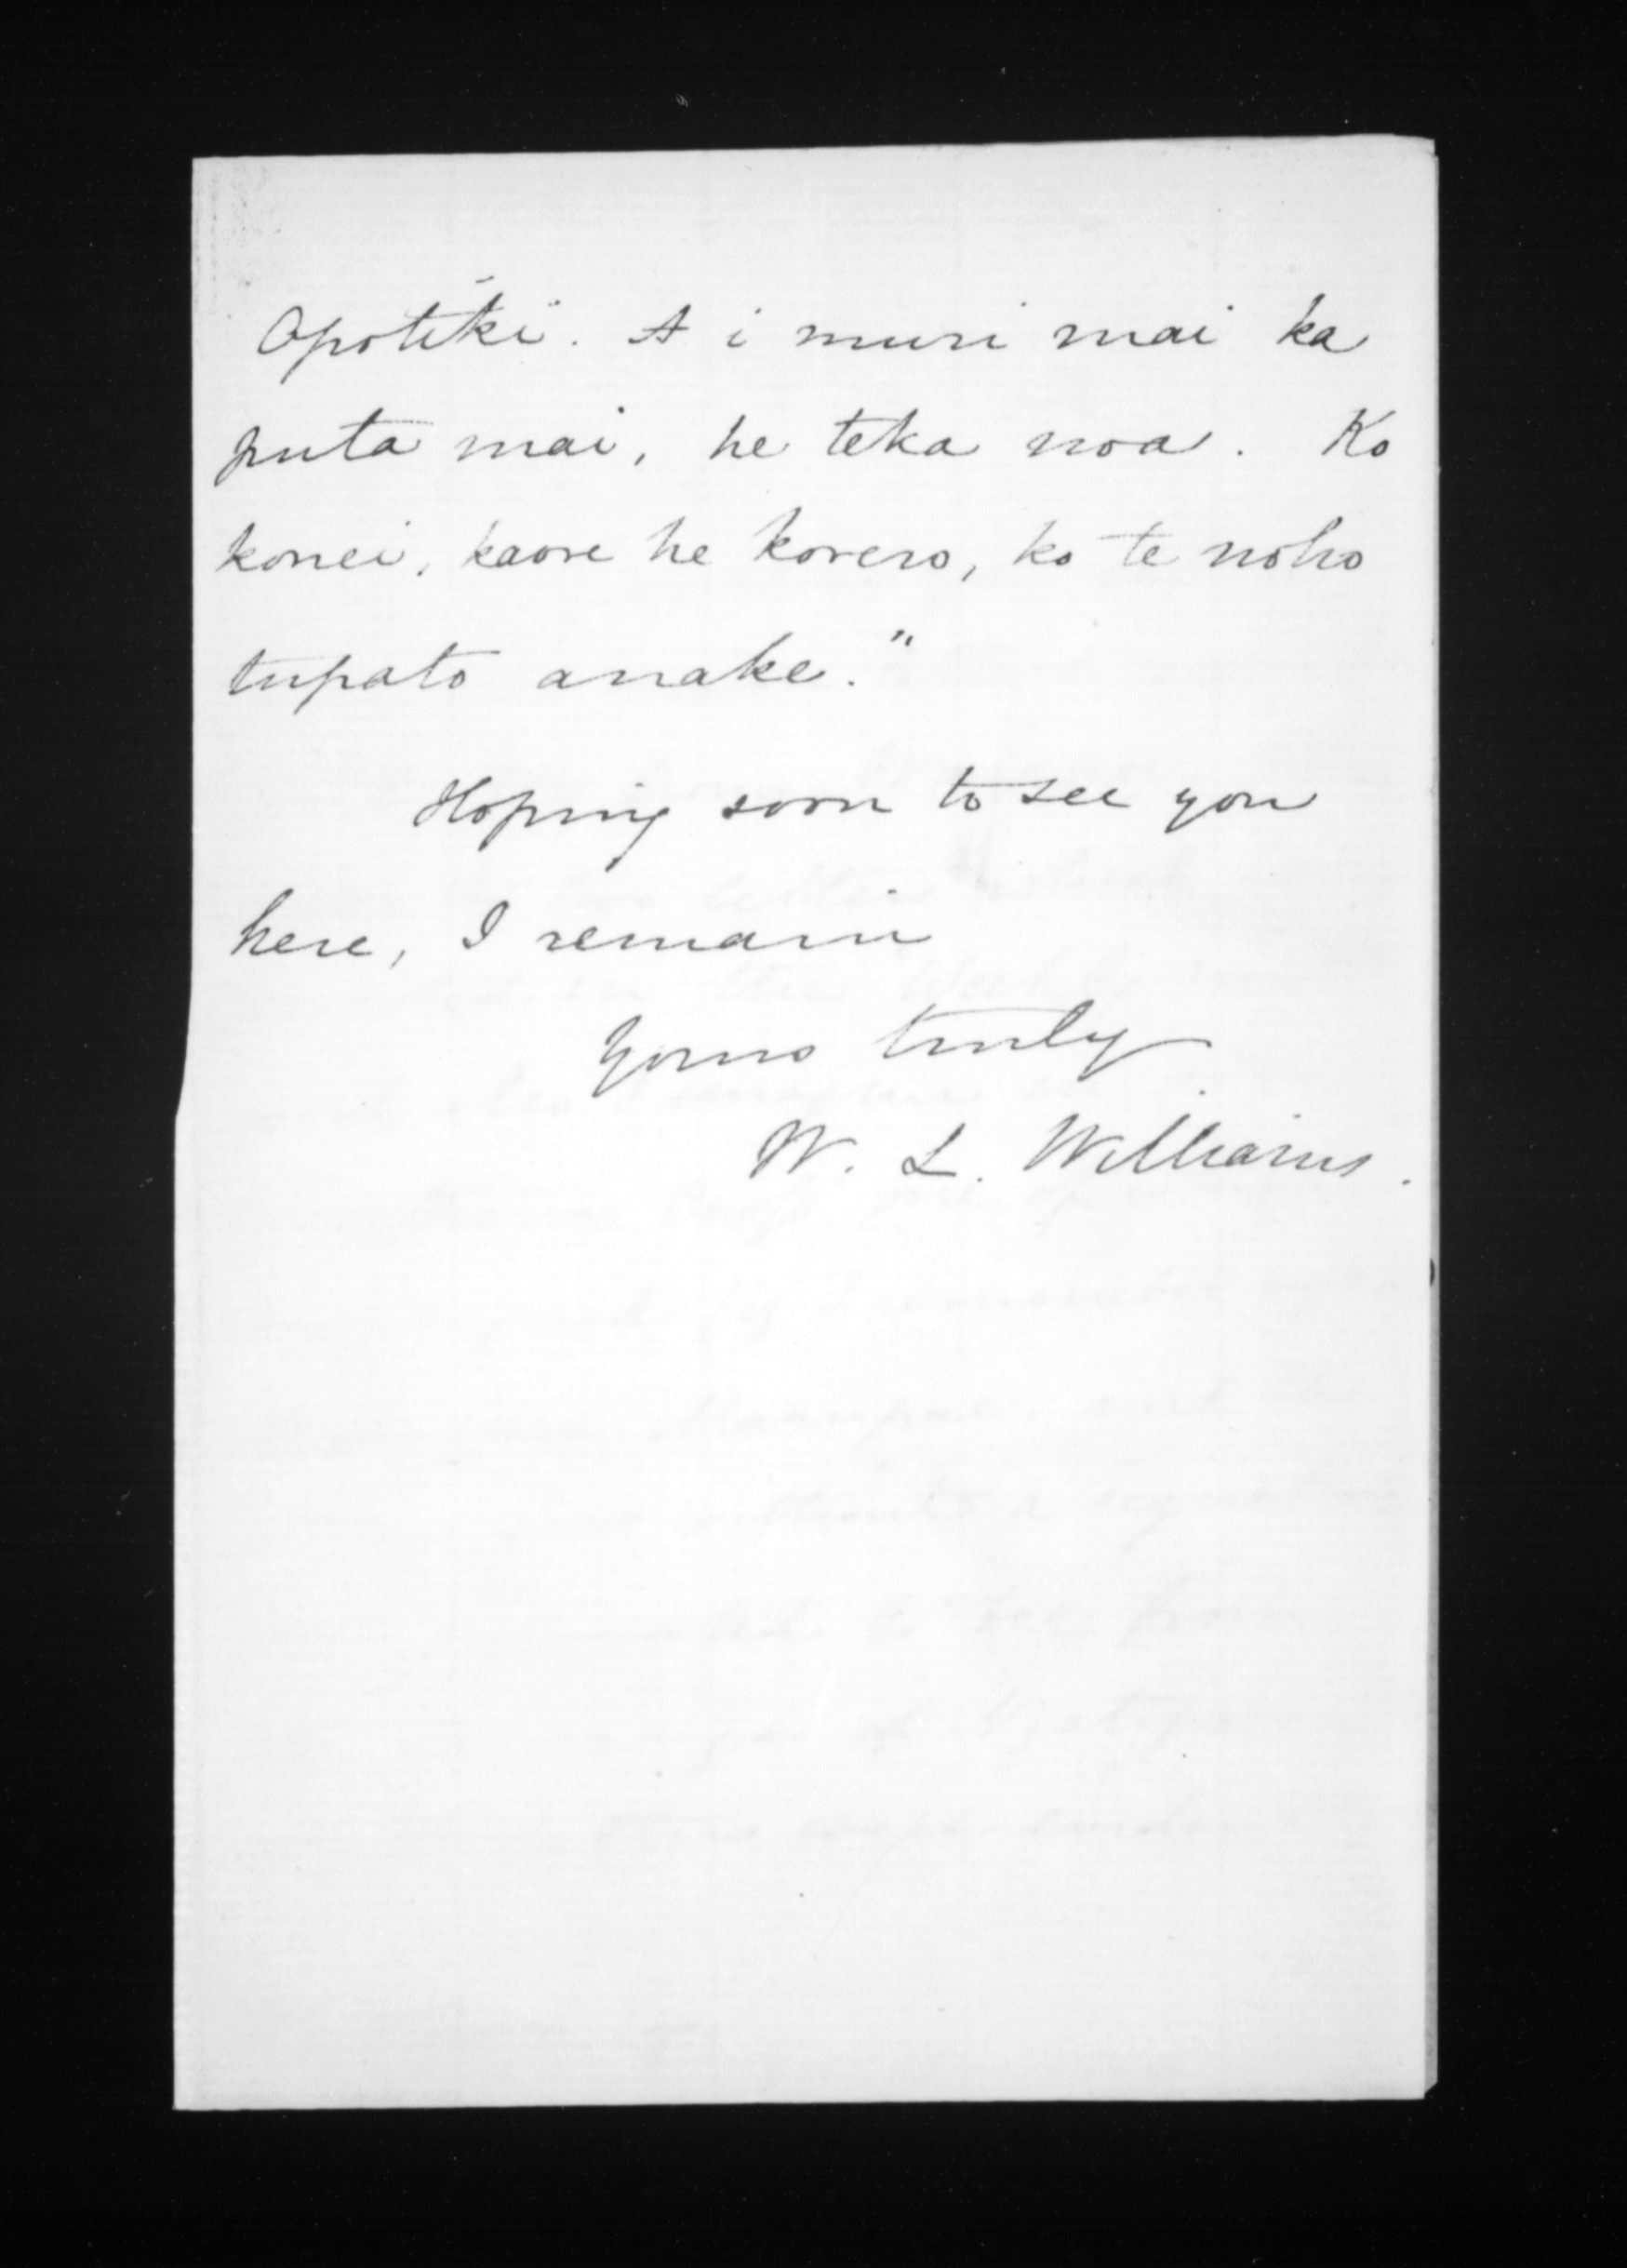 Opotiki. A i muri mai ka
puta mai, he teka noa. Ko
konei, kaore he korero, ko te noho
tupato anake."
Hoping soon to see you
here, I remain
Yours truly
W. L. Williams.